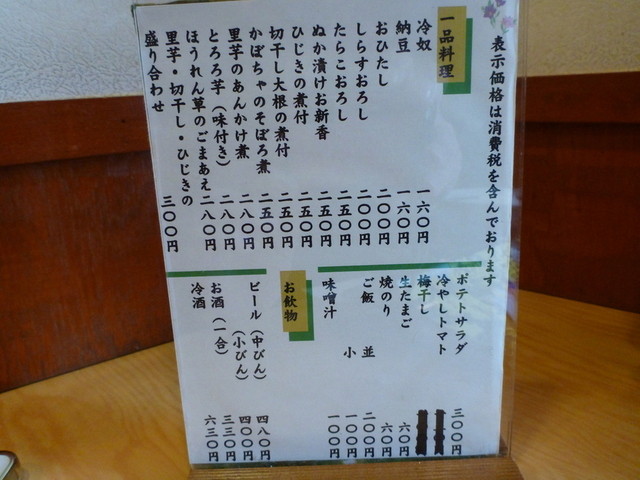 表示価格は消費税を含んでおります
一品料理
冷奴 一六〇円
納豆 一六〇円
おひたし 二〇〇円
しらすおろし 二〇〇円
たらこおろし 二五〇円
ぬか漬けお新香 二五〇円
ひじきの煮付 二五〇円
切干し大根の煮付 二五〇円
かぼちゃのそぼろ煮 二五〇円
里芋のあんかけ煮 二八〇円
とろろ芋（味付き） 二八〇円
ほうれん草のごまあえ 二八〇円
里芋・切干し・ひじきの
盛り合わせ 三〇〇円
ポテトサラダ 三〇〇円
冷やしトマト
梅干し
生たまご 六〇円
焼のり 六〇円
ご飯 並 二〇〇円
小 一〇〇円
味噌汁 一〇〇円
お飲物
ビール（中びん） 四八〇円
（小びん） 四〇〇円
お酒（一合） 三三〇円
冷酒 六三〇円